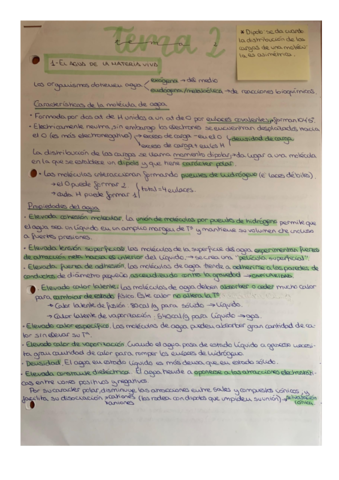 Tema 2
* Dipolo se da cuando
la distribución de las
cargas de una molécula
es asimétrica.
1- EL AGUA DE LA MATERIA VIVA
Los organismos obtienen agua exógena → del medio
endógena/metabólica → de reacciones bioquímicas
Características de la molécula de agua
• Formada por dos at de H unidos a un at de O por enlaces covalentes (forman 104'5º)
• Electricamente neutra, sin embargo los electrones se encuentran desplazados hacia
el O (es más electronegativo) → exceso de carga ⊖ en el O
→ exceso de cargas ⊕ en los H
densidad de carga
La distribución de las cargas se llama momento dipolar → da lugar a una molécula
en la que se establece un dipolo y que tiene carácter polar
• Las moléculas interaccionan formando puentes de hidrógeno (e. laces débiles)
→ el O puede formar 2
→ cada H puede formar 1
total = 4 enlaces.
Propiedades del agua
• Elevada cohesión molecular. La unión de moléculas por puentes de hidrógeno permite que
el agua sea un líquido en un amplio margen de Tª y mantiene su volumen incluso
a fuertes presiones.
• Elevada tensión superficial: las moléculas de la superficie del agua experimentan fuerzas
de atracción neta hacia el interior del líquido → se crea una "película superficial".
• Elevada fuerza de adhesión: las moléculas de agua tienden a adherirse a las paredes de
conductos de diámetro pequeño ascendiendo contra la gravedad →
• Elevado calor latente: las moléculas de agua deben absorber o ceder mucho calor
para cambiar de estado físico. Este calor no altera la Tª
→ Calor latente de fusión → Líquido.
→ Calor latente de vaporización Líquido → gas.
• Elevado calor específico: Las moléculas de agua pueden absorber gran cantidad de ca-
lor sin elevar su Tª.
• Elevado calor de vaporización: Cuando el agua pasa de estado líquido a gaseoso necesi-
ta gran cantidad de calor para romper los enlaces de hidrógeno.
• Densidad: El agua en estado líquido es más densa que en estado sólido.
• Elevada constante dieléctrica: El agua tiende a oponerse a las atracciones electrostáti-
cas entre iones positivos y negativos.
Por su carácter polar disminuye las atracciones entre sales y compuestos iónicos, y
facilita su disociación → cationes
→ aniones
(los rodea con dipolos que impiden su unión) → solvatación
iónica